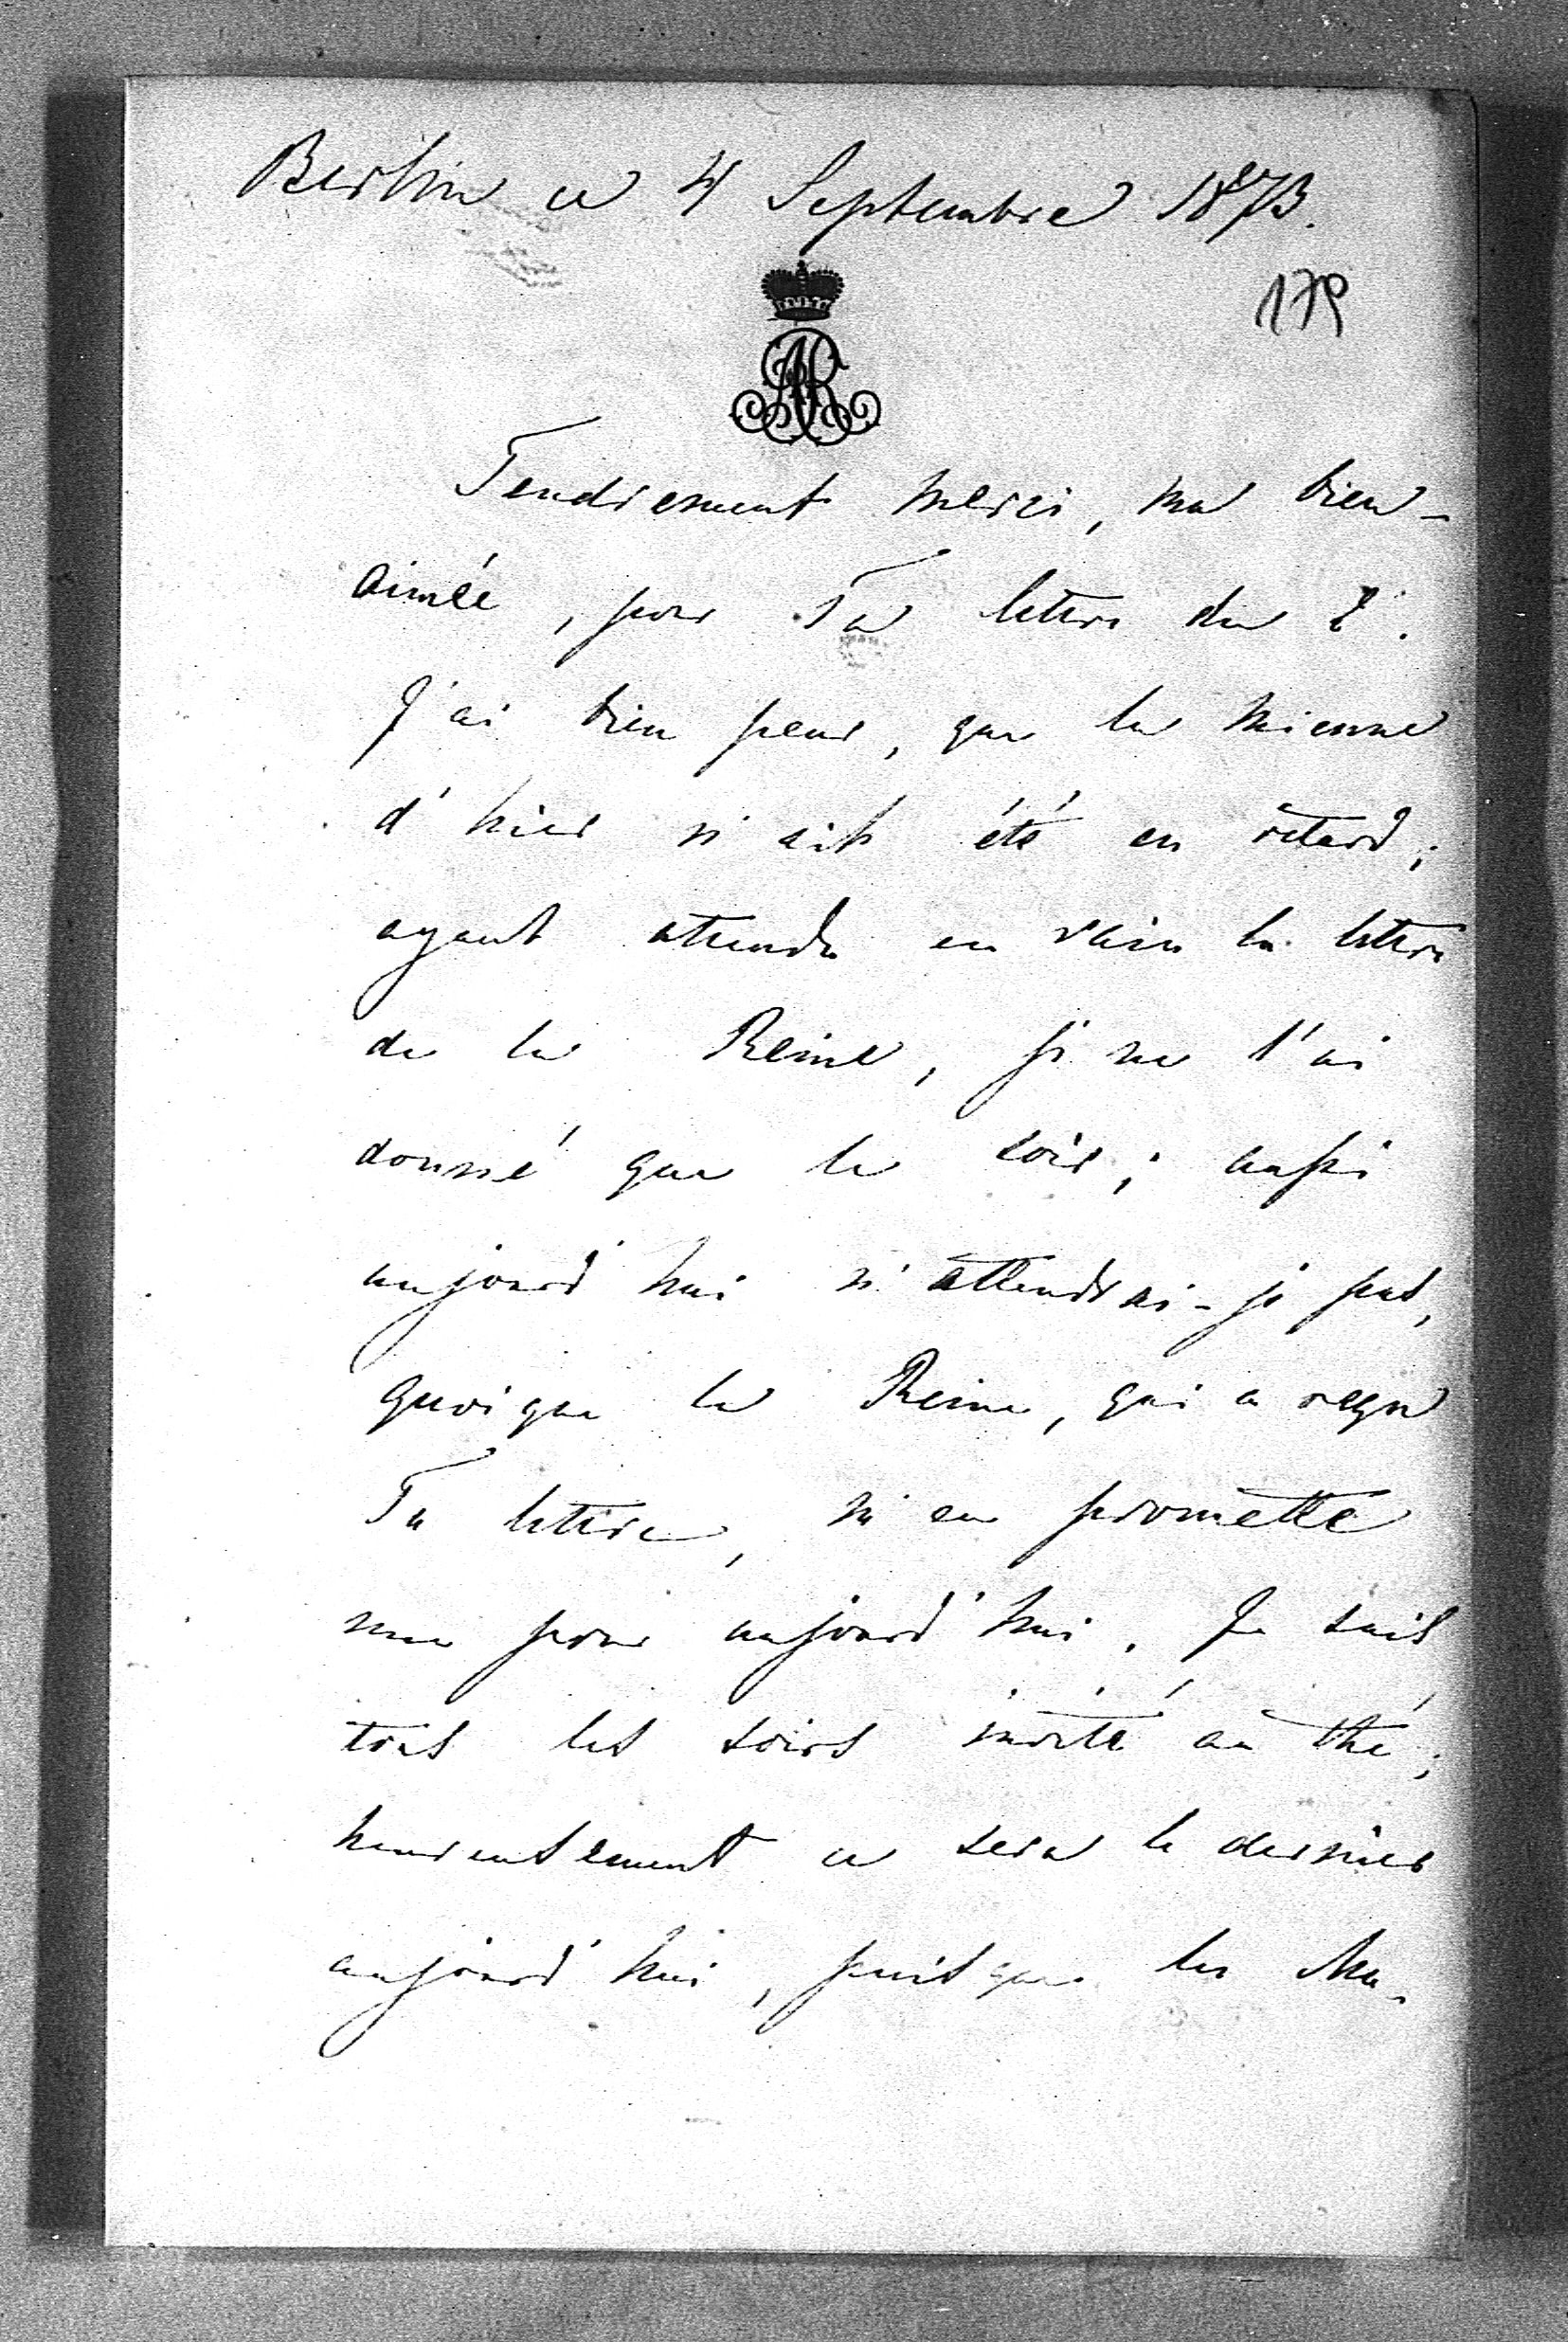 Berlin ce 4 Septembre 1873.
179
AR
Tendrement merci, ma bien-
aimée, pour Ta lettre du 2.
J'ai bien peur, que la mienne
d'hier n'ait été en retard;
ayant attendu en vain la lettre
de la Reine, je ne l'ai
donné que le soir; aussi
aujourd'hui n'attendrai-je pas,
quoique la Reine, qui a reçu
Ta lettre, m'en promette
une pour aujourd'hui. Je suis
tous les soirs invité au thé;
heureusement ce sera le dernier
aujourd'hui, puisque les Ma-